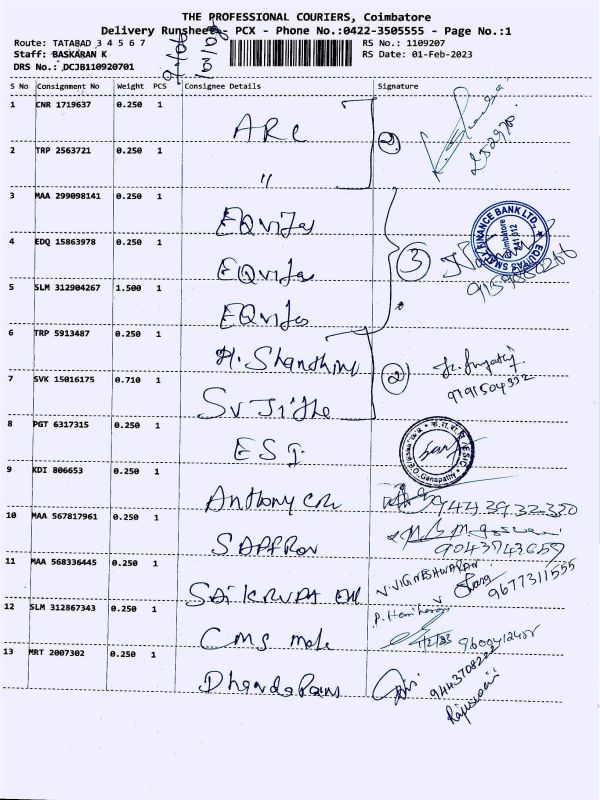 THE PROFESSIONAL COURIERS, Coimbatore
Delivery Runsheet - PCX - Phone No.:0422-3505555 - Page No.:1
Route: TATABAD 3 4 5 6 7
RS No.: 1109207
Staff: BASKARAN K
RS Date: 01-Feb-2023
DRS No.: DCJB110920701
S No Consignment No Weight PCS Consignee Details Signature
1 CNR 1719637 0.250 1 ARC
2 TRP 2563721 0.250 1 "
2
3 MAA 299098141 0.250 1 EQuitas
4 EDQ 15863978 0.250 1 EQuitas
5 SLM 312904267 1.500 1 EQuitas
3
EQUITAS SMALL FINANCE BANK LTD.,
Coimbatore
641 012
6 TRP 5913487 0.250 1 H. Shanthini
7 SVK 15016175 0.710 1
2
8 PGT 6317315 0.250 1 ESI
9 KDI 806653 0.250 1 Anthony
10 MAA 567817961 0.250 1 SAFFRON
9043743659
11 MAA 568336445 0.250 1 SAI KRUPA
V.VIGNESHWARAN
9677311555
12 SLM 312867343 0.250 1 CMS
P. Hariharan
1/2/23
13 MRT 2007302 0.250 1 Dhandapani
Rajeswari